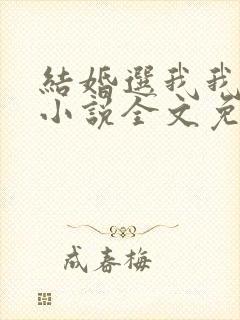 結婚選我我
小說全文免
成春梅